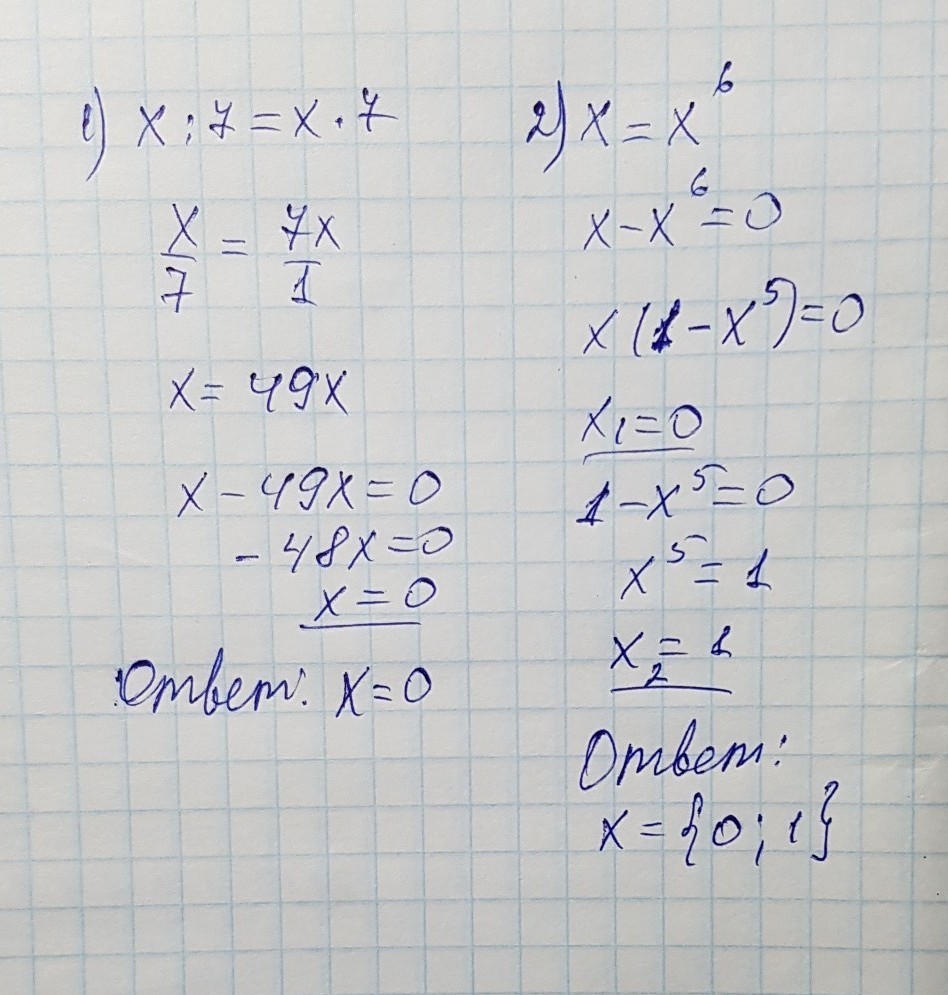 1) x : 7 = x · 7
x/7 = 7x/1
x = 49x
x - 49x = 0
- 48x = 0
x = 0
Ответ: x = 0
2) x = x⁶
x - x⁶ = 0
x (1 - x⁵) = 0
x₁ = 0
1 - x⁵ = 0
x⁵ = 1
x₂ = 1
Ответ:
x = {0; 1}